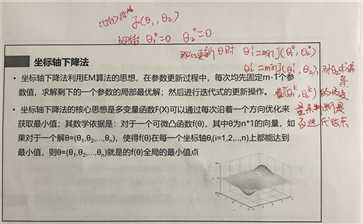 J(θ₁, θ₂)
θ₁⁰=0 θ₂⁰=0
坐标轴下降法
• 坐标轴下降法利用EM算法的思想，在参数更新过程中，每次均先固定m-1个参
数值，求解剩下的一个参数的局部最优解；然后进行迭代式的更新操作。
• 坐标轴下降法的核心思想是多变量函数F(X)可以通过每次沿着一个方向优化来
获取最小值；其数学依据是：对于一个可微凸函数f(θ)，其中θ为n*1的向量，如
果对于一个解θ=(θ₁,θ₂,...,θₙ)，使得f(θ)在每一个坐标轴θᵢ(i=1,2,..,n)上都能达到
最小值，则θ=(θ₁,θ₂,...,θₙ)就是的f(θ)全局的最小值点